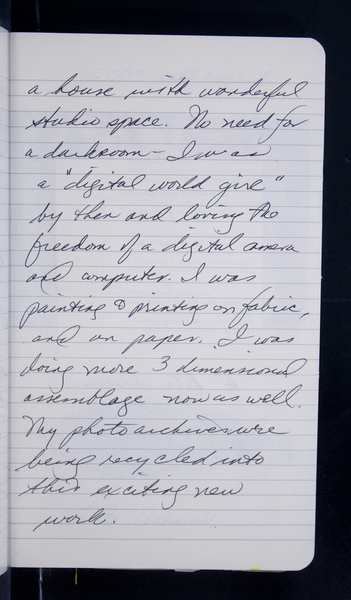 a house with wonderful
studio space. No need for
a darkroom - I was
a "digital world girl"
by then and loving the
freedom of a digital camera
and computer. I was
painting & printing on fabric,
and on paper. I was
doing more 3 dimensional
assemblage now as well.
My photo archives were
being recycled into
this exciting new
work.